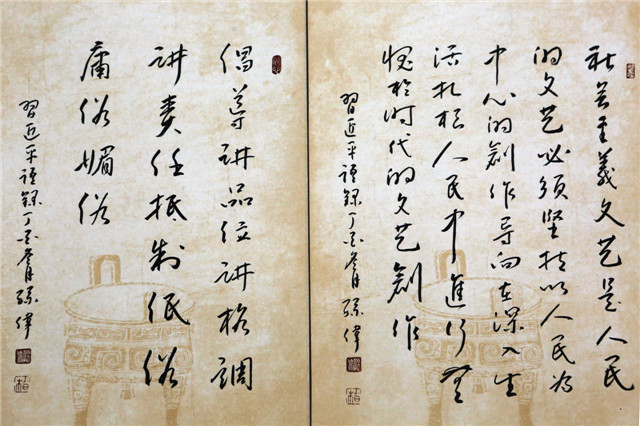 社会主義文艺是人民
的文艺必须坚持以人民为
中心的創作导向在深入生
活扎根人民中進行無
愧於时代的文艺創作
習近平语録丁酉月孫偉
倡導讲品位讲格調
讲责任抵制低俗
庸俗媚俗
習近平语録丁酉月孫偉